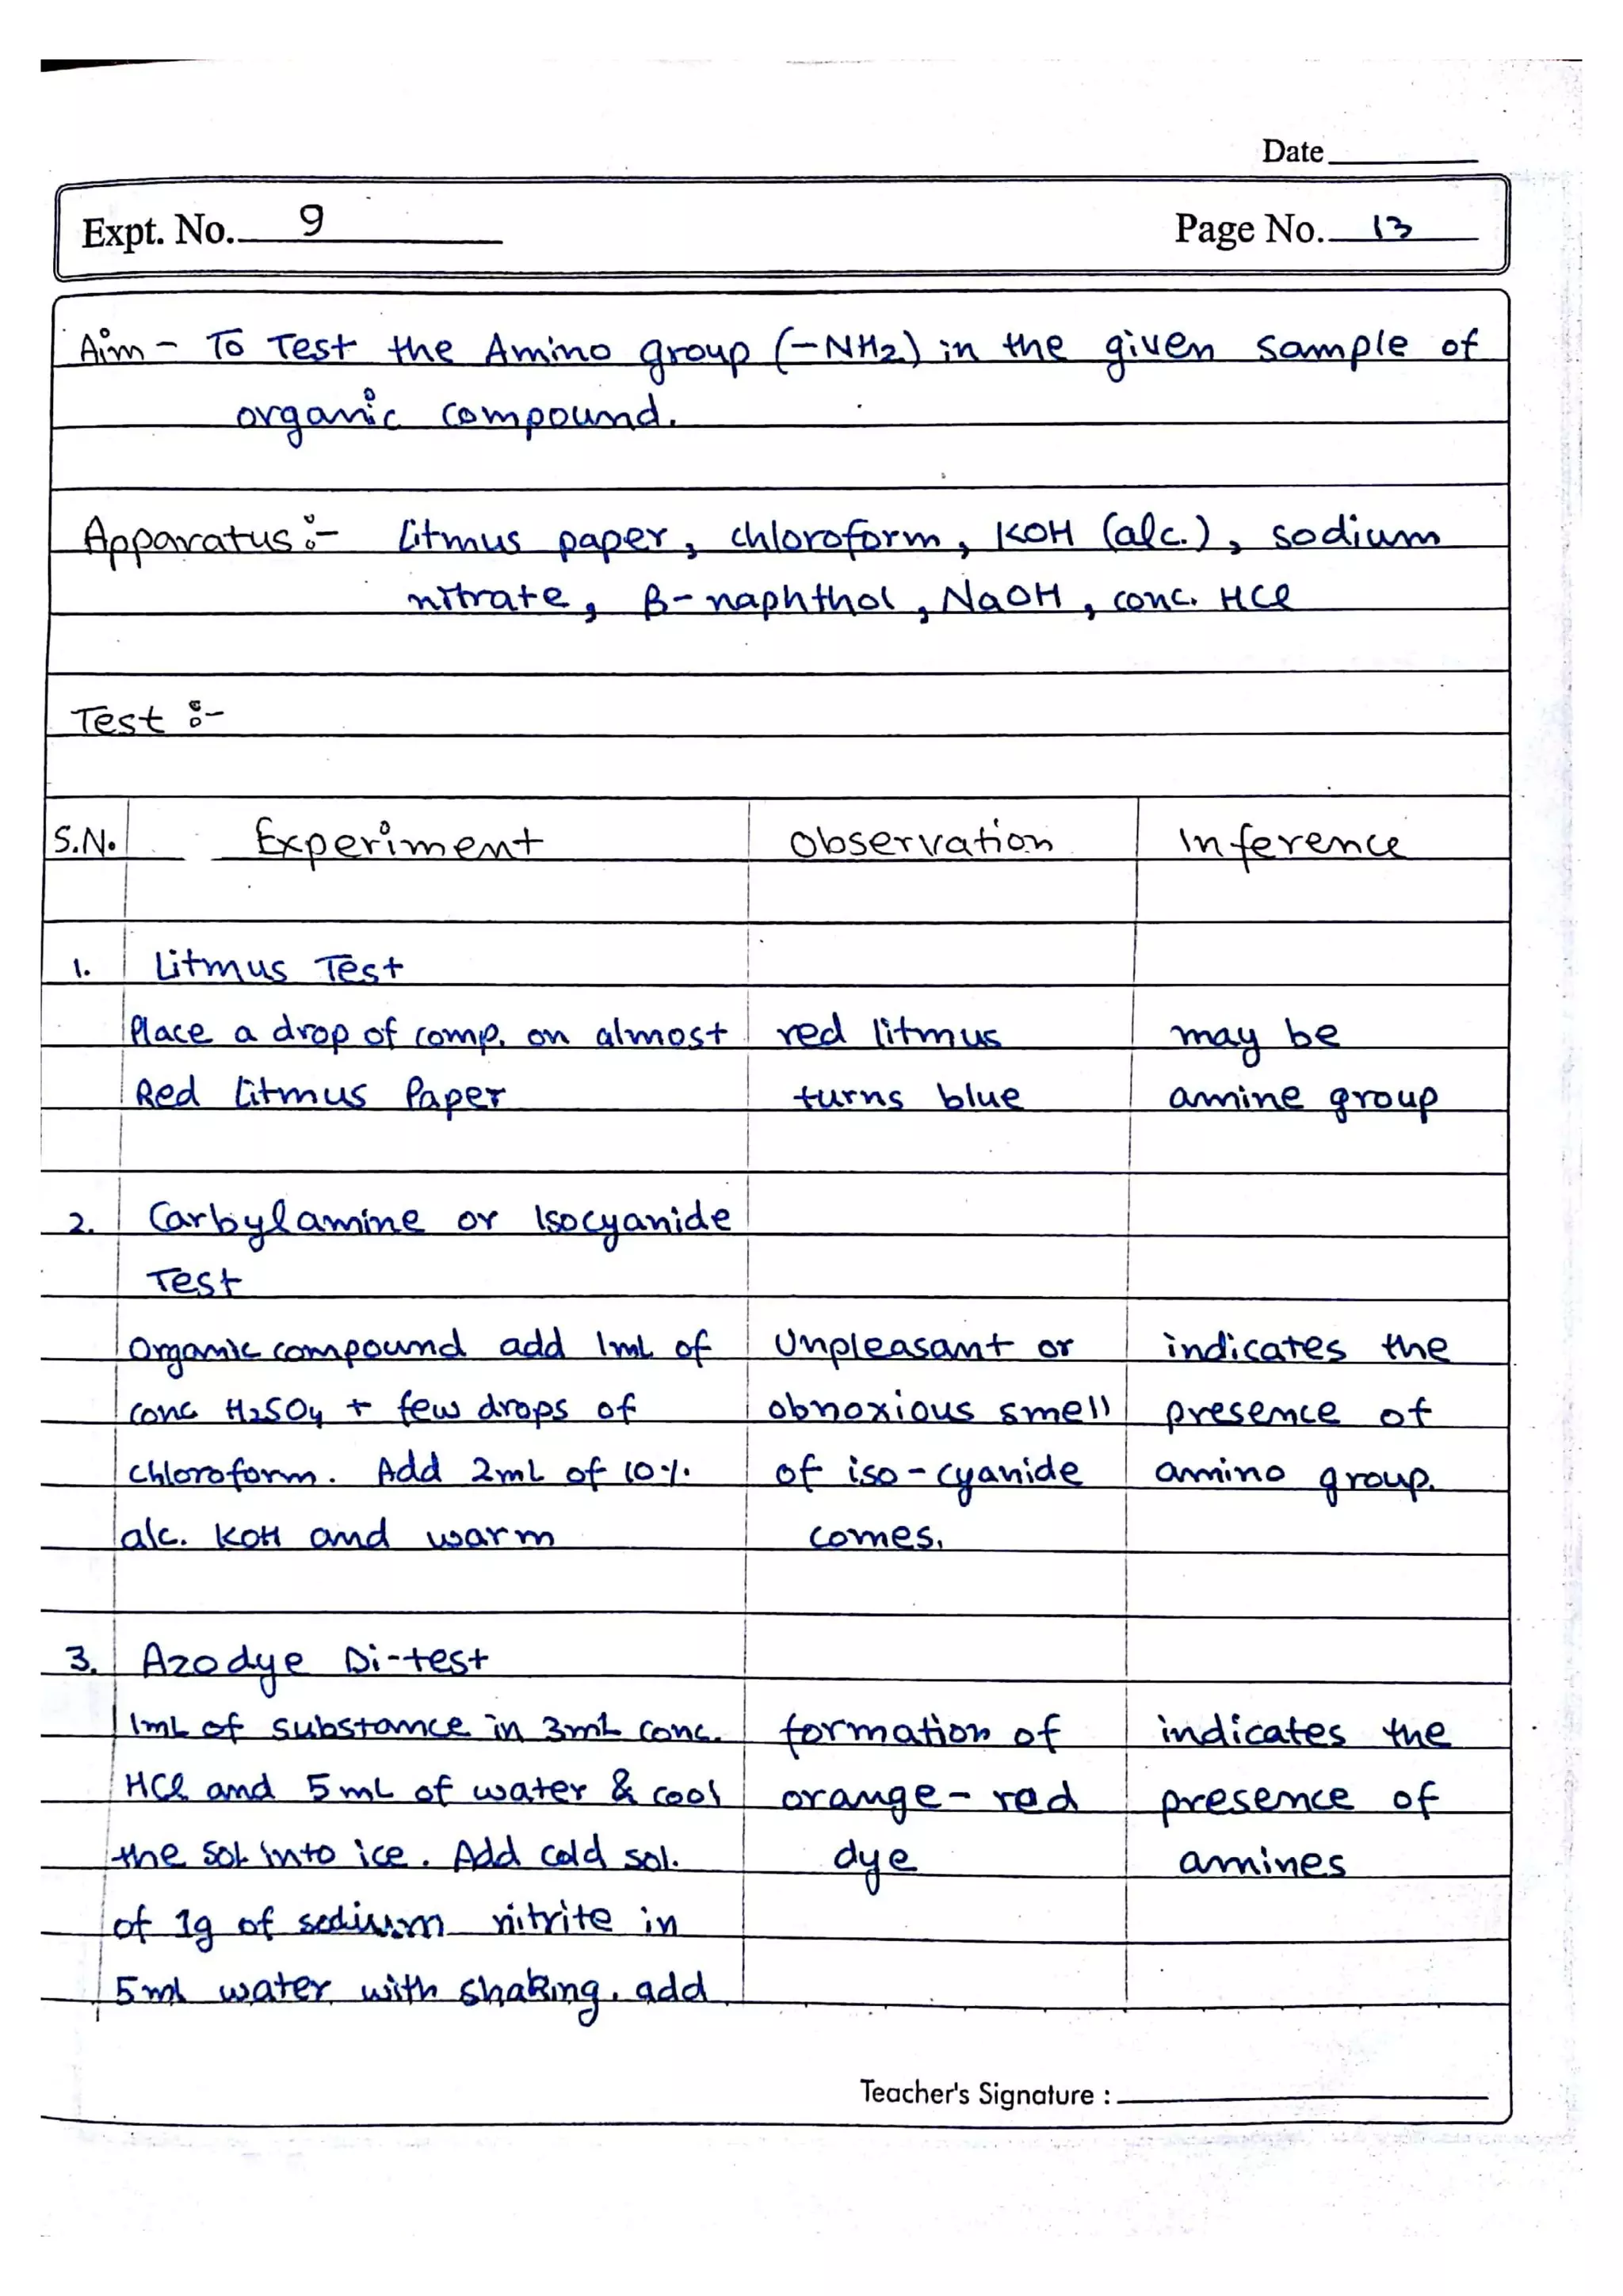 Date
Expt. No. 9 Page No. 13
Aim - To Test the Amino group (-NH2) in the given sample of
organic compound.
Apparatus :- Litmus paper, chloroform, KOH (alc.), sodium
nitrate, β-naphthol, NaOH, conc. HCl
Test :-
S.N. Experiment Observation Inference
1. Litmus Test
Place a drop of comp. on almost red litmus may be
Red Litmus Paper turns blue amine group
2. Carbylamine or Isocyanide
Test
Organic compound add 1mL of Unpleasant or indicates the
conc H2SO4 + few drops of obnoxious smell presence of
chloroform. Add 2mL of 10% of iso-cyanide amino group.
alc. KOH and warm comes.
3. Azodye Di-test
1mL of substance in 3mL conc. formation of indicates the
HCl and 5mL of water & cool orange-red presence of
the sol into ice. Add cold sol. dye amines
of 1g of sodium nitrite in
5ml water with shaking. add
Teacher's Signature :